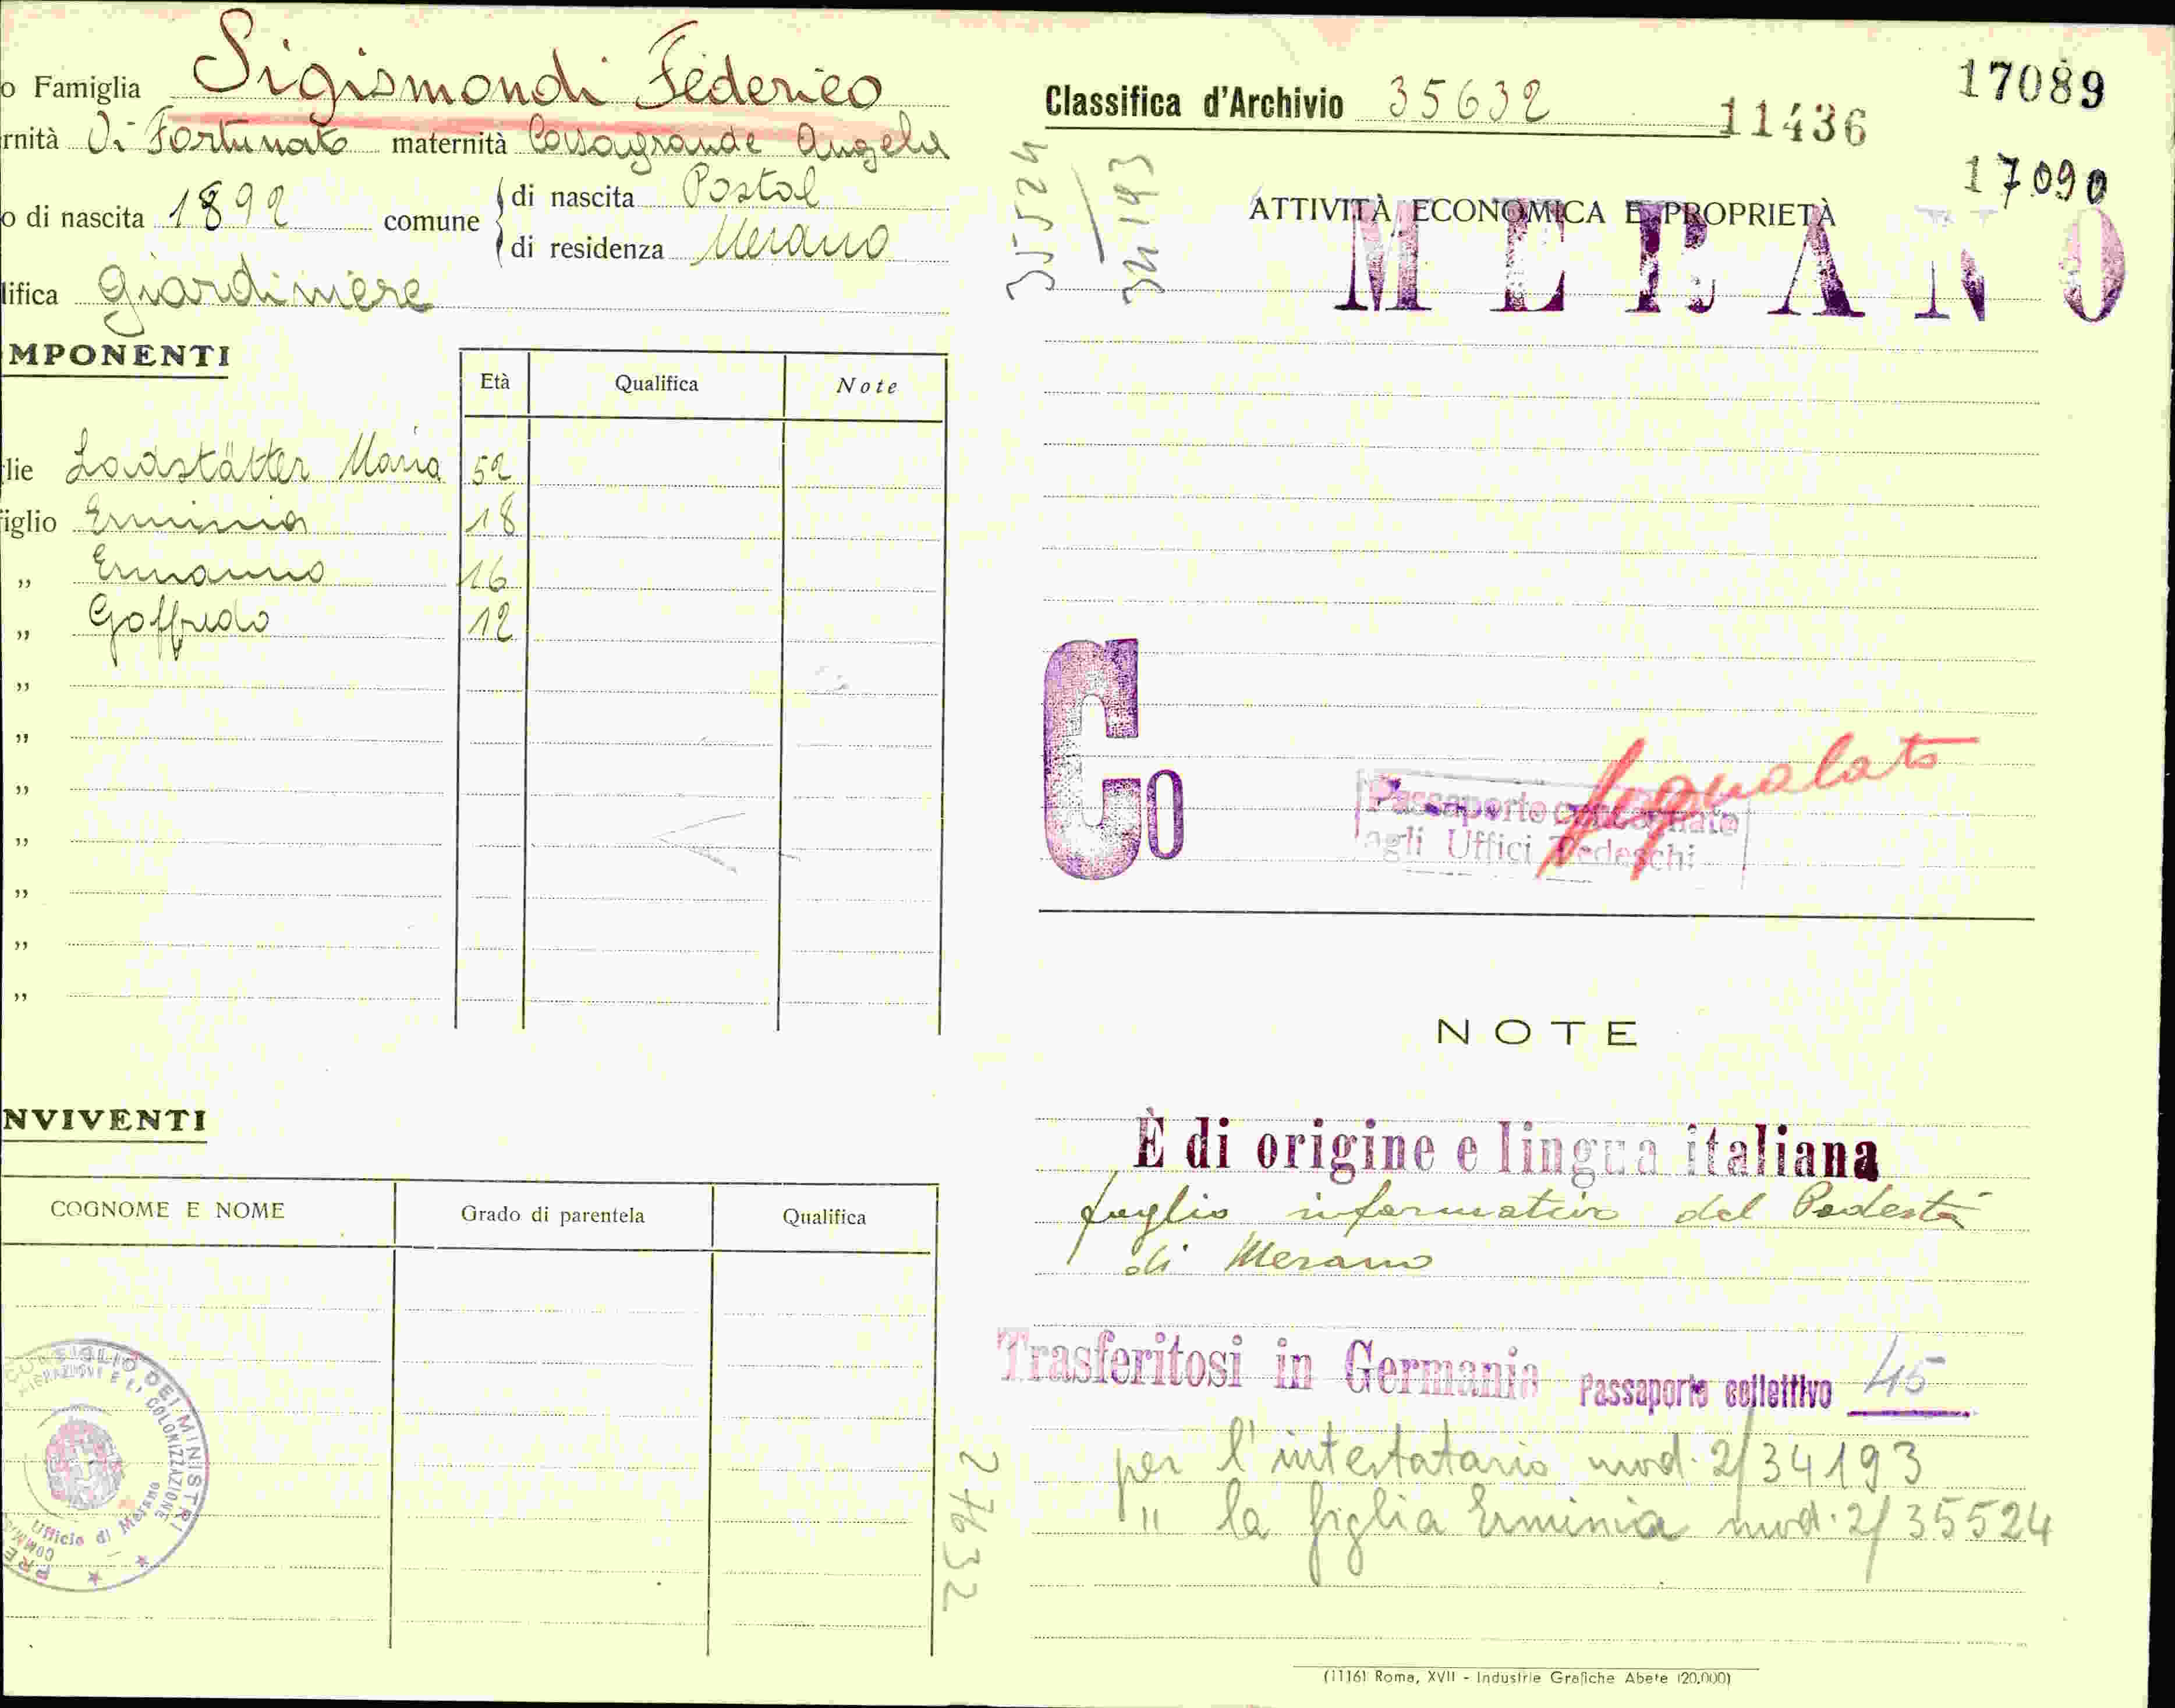 o Famiglia Sigismondi Federico
rnità di Fortunato maternità Casagrande Angela
o di nascita 1892 comune
di nascita Postal
di residenza Merano
lifica giardiniere
MPONENTI
Età Qualifica Note
lie Ladstätter Maria 52
iglio Erminia 18
,, Ermanno 16
,, Goffredo 12
,,
,,
,,
,,
,,
,,
,,
NVIVENTI
COGNOME E NOME Grado di parentela Qualifica
CONSIGLIO DEI MINISTRI
COLONIZZAZIONE
Ufficio di Merano
PRE
27632
Classifica d'Archivio 35632
11436
17089
17090
35524
34193
ATTIVITÀ ECONOMICA E PROPRIETÀ
MERANO
Co
Passaporto consegnato
agli Uffici Tedeschi
segnalato
NOTE
È di origine e lingua italiana
foglio informativo del Podestà
di Merano
Trasferitosi in Germania Passaporto collettivo 45
per l'intestatario mod. 2/34193
" la figlia Erminia mod. 2/35524
(1116) Roma, XVII - Industrie Grafiche Abete (20.000)